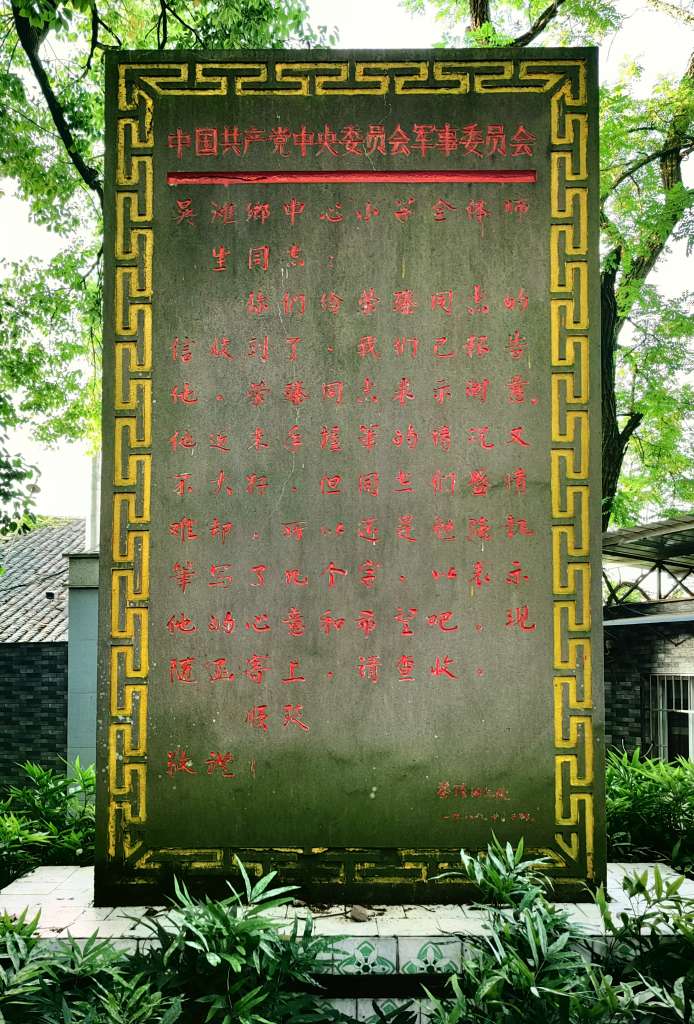 中国共产党中央委员会军事委员会
吴滩乡中心小学全体师
生同志：
你们给荣臻同志的
信收到了，我们已报告
他。荣臻同志来示谢意。
他近来手握笔的情况又
不大好，但同志们盛情
难却，所以还是勉强执
笔写了几个字，以表示
他的心意和希望吧。现
随函寄上，请查收。
顺致
敬礼！